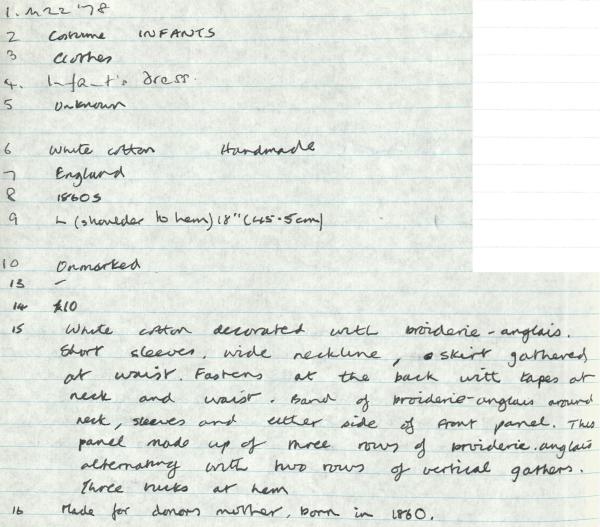 1. M22 '78
2 Costume INFANTS
3 Clothes
4. Infant's dress.
5 Unknown
6 White cotton Handmade
7 England
8 1860s
9 L (shoulder to hem) 18" (45.5cm)
10 Unmarked
13 -
14 £10
15 White cotton decorated with broiderie-anglais.
Short sleeves, wide neckline, skirt gathered
at waist. Fastens at the back with tapes at
neck and waist. Band of broiderie-anglais around
neck, sleeves and either side of front panel. This
panel made up of three rows of broiderie.anglais
alternating with two rows of vertical gathers.
Three tucks at hem
16 Made for donors mother, born in 1860.